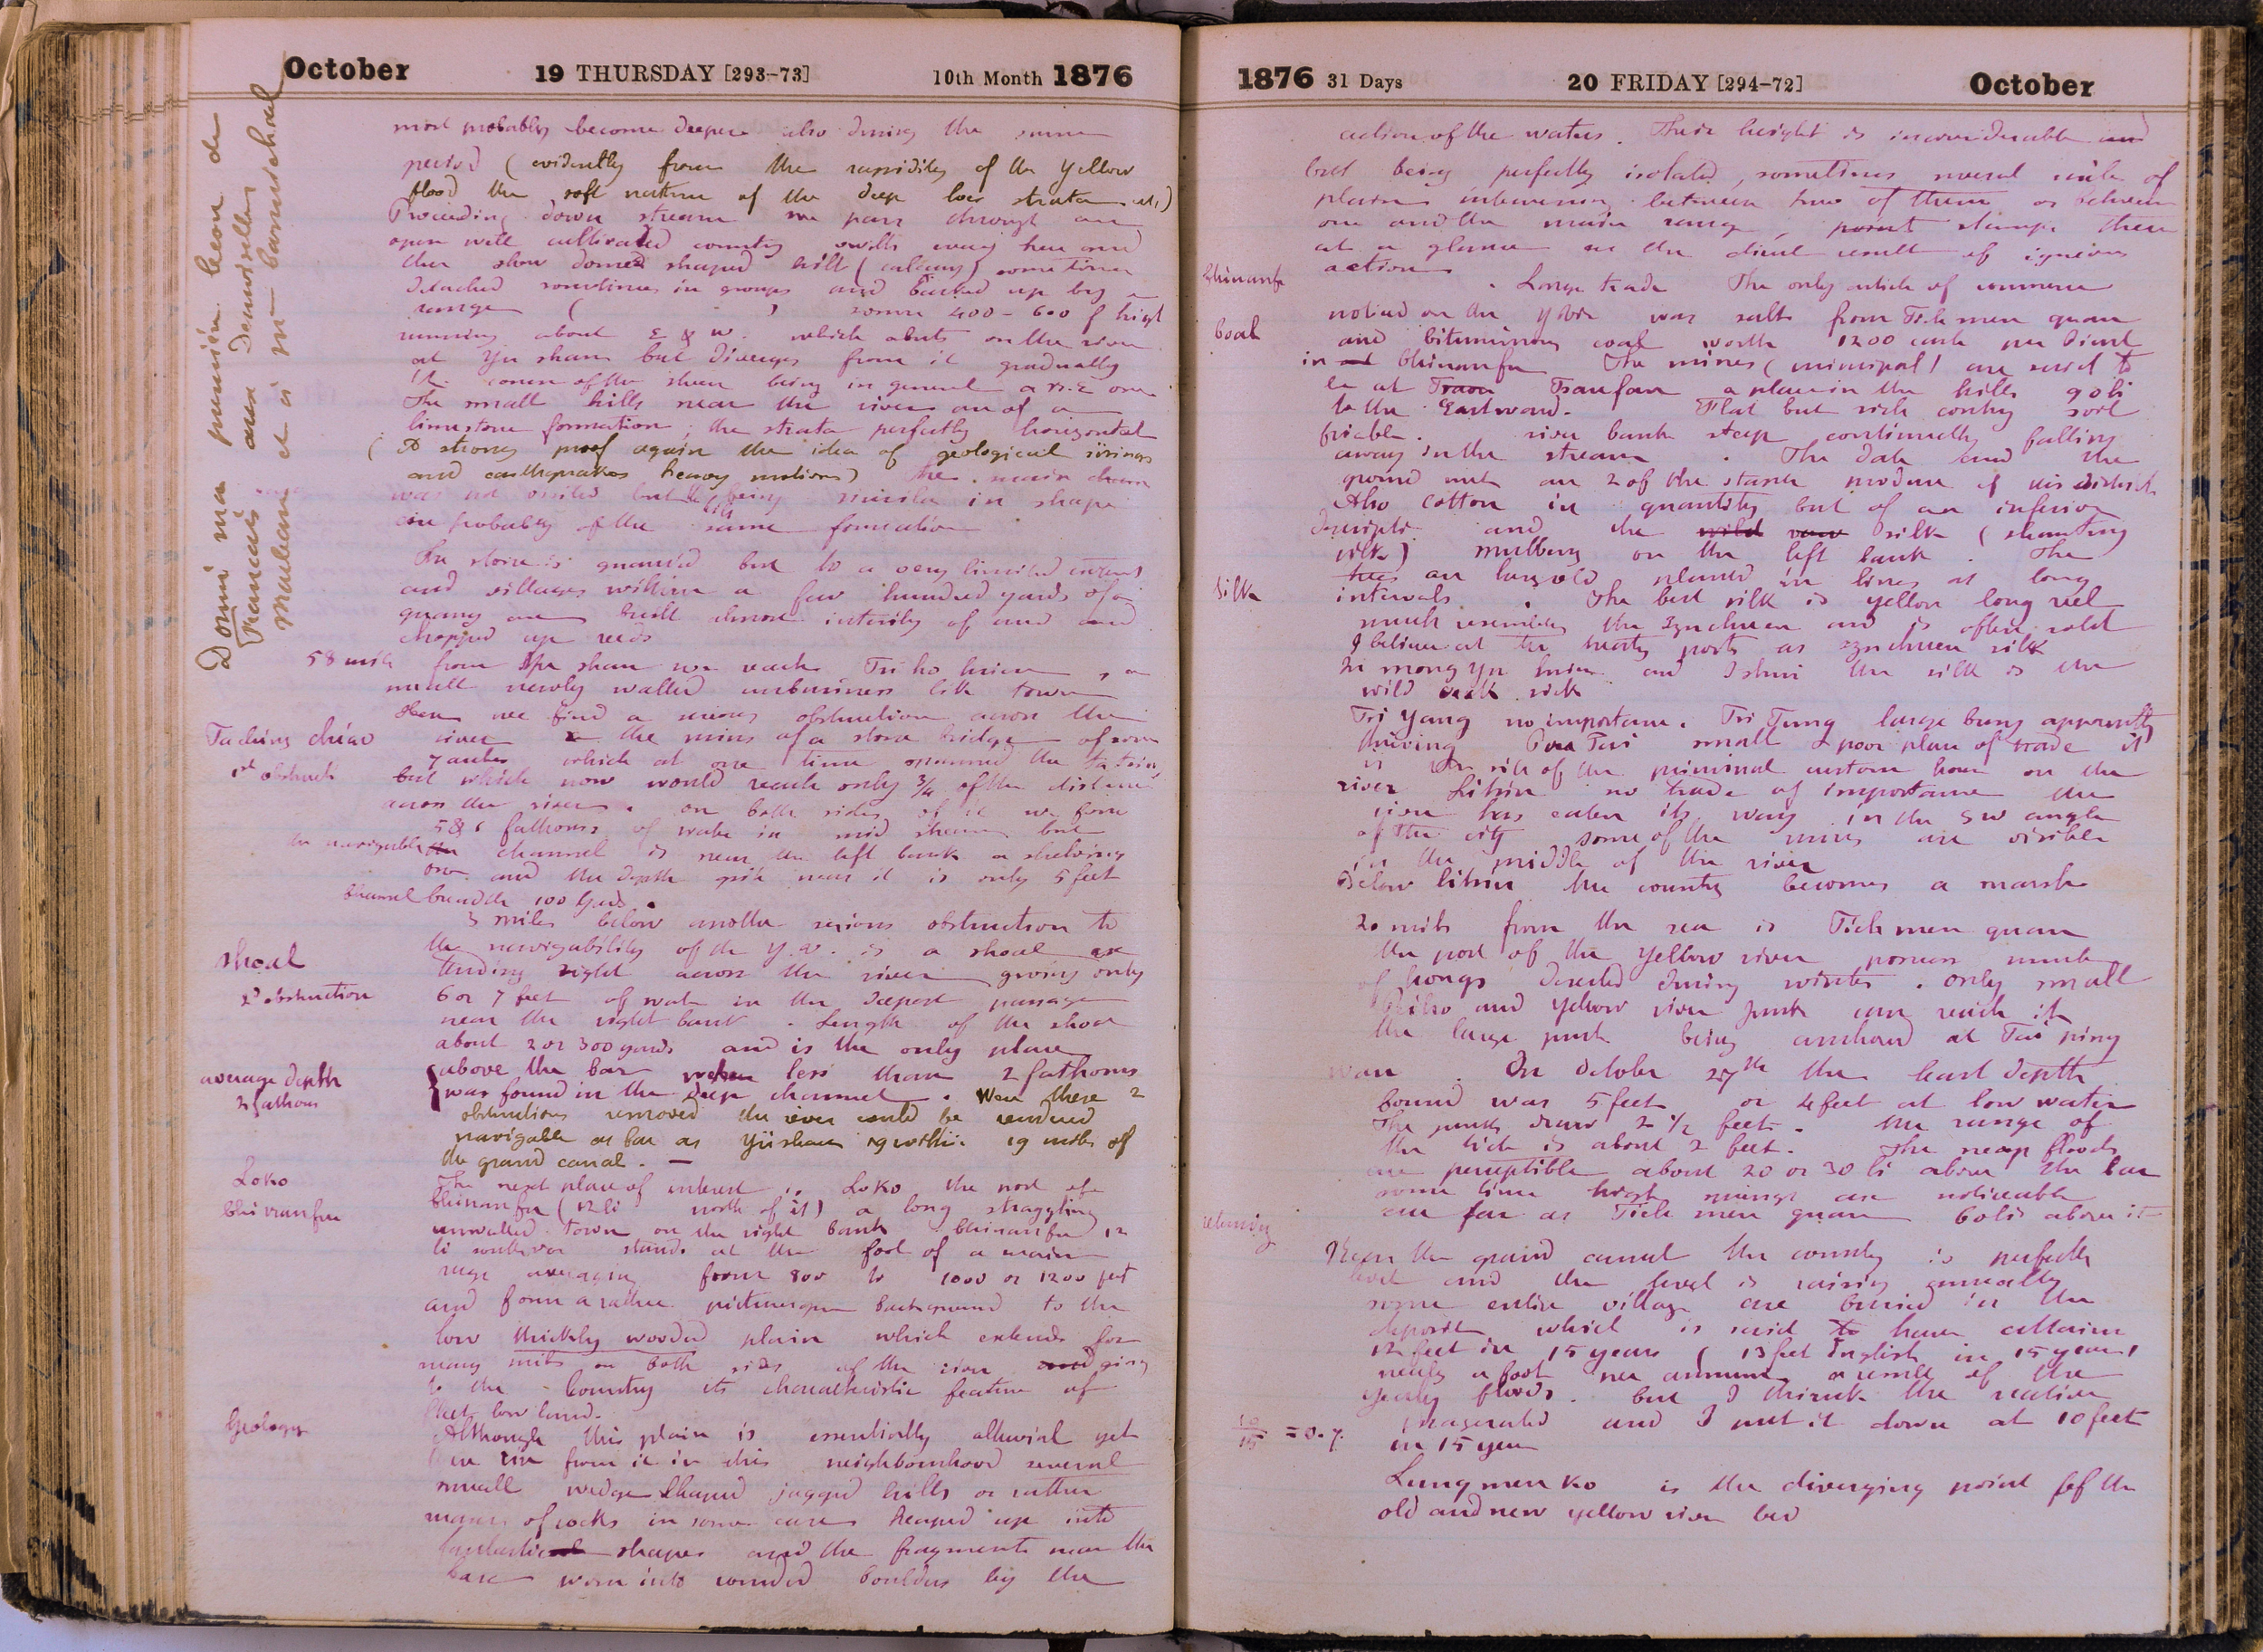 October 19 THURSDAY [293-73] 10th Month 1876
most probably become deeper also during the summer
period (evidently from the rapidity of the Yellow
flood the soft nature of the deep loes strata etc)
Proceeding down stream we pass through an
open well cultivated country with every here and
there domed shaped hill sometimes
detached sometimes in groups and backed up by a
range ( ) some 400 - 600 f high
running about E & W. which abuts on the river
at Yu shan but diverges from it gradually
the course of the stream being in general a N.E one
The small hills near the river are of a
limestone formation; the strata perfectly horizontal
(A strong proof again the idea of geological risings
and earthquakes heavy motions) the main chain
was not visited but the hills being similar in shape
are probably of the same formation
The stone is quarried but to a very limited extent
and villages within a few hundred yards of a
quarry are built almost entirely of mud and
chopped up reeds
58 miles from Yu shan we reach Tsi ho hsien, a
small newly walled unbusiness like town
Here we find a serious obstruction across the
Ta ching chiao river the ruins of a stone bridge of some
1st obstruct 7 arches which at one time spanned the Ta tsing
but which now would reach only 3/4 of the distance
across the river. on both sides of it we found
5 & 6 fathoms of water in mid stream but
the navigable channel is near the left bank a shelving
one and the depth quite near it is only 5 feet
Channel breadth 100 yards.
3 miles below another serious obstruction to
shoal the navigability of the Y.R. is a shoal ex
tending right across the river giving only
2d obstruction 6 or 7 feet of water in the deepest passage
near the right bank. Length of the shoal
about 2 or 300 yards and is the only place
average depth above the bar where less than 2 fathoms
2 fathoms was found in the deep channel. Were these 2
obstructions removed the river could be rendered
navigable as far as Yü shan within 19 miles of
the grand canal. —
Loko The next place of interest is Loko the port of
Chi nan fu Chinanfu (12 li north of it) a long straggling
unwalled town on the right bank Chinanfu 12
li southward stands at the foot of a main
range averaging from 800 to 1000 or 1200 feet
and form a rather picturesque background to the
low thickly wooded plain which extends for
many miles on both sides of the river and giving
to the Country its characteristic feature of
flat low land.
Geology Although this plain is essentially alluvial yet
there rise from it in this neighbourhood several
small wedge shaped jagged hills or rather
masses of rocks in some cases heaped up into
fantastical shapes and the fragments near the
base worn into rounded boulders by the
Domini ma
Francais aux Demoiselles
1876 31 Days 20 FRIDAY [294-72] October
action of the waters. Their height is inconsiderable and
but being perfectly isolated, sometimes several miles of
plain intervening between two of them or between
one and the main range, point stamps them
at a glance as the direct result of igneous
action
Chinanfu . Longe trade The only article of commerce
noticed on the Y river was salt from Tieh men quan
Coal and bituminous coal worth 1200 cash per picul
in at Chinanfu The mines (principal) are said to
be at Tsaufan a place in the hills 90 li
to the Eastward. Flat but rich contry soil
friable. river bank steep continually falling
away in the stream. The date and the
ground nut are 2 of the staple produce of this district
Also cotton in quantity but of an inferior
descriptn and the wild raw silk (shantung
silk) mulberry on the left bank. The
trees are large old planted in lines at long
Silk intervals. The best silk is yellow long reel
much resembling the Szechuen and is often sold
I believe at the treaty ports as szechuen silk
In mong yn hsien and I shui the silk is the
wild oak silk
Tsi yang no importance. Tsi Tung large busy apparently
thriving Pu Tai small & poor place of trade it
is the site of the principal custom house on the
river Litsin no trade of importance the
river has eaten its way in the SW angle
of the city some of the ruins are visible
in the middle of the river
Below litsin the country becomes a marsh
20 miles from the sea is Tieh men quan
the port of the yellow river possess number
of hongs deserted during winter. only small
and Yellow river junk can reach it
the large junk being anchored at Tai ping
wan. On October 27th the least depth
found was 5 feet or 4 feet at low water
The junks draw 2 1/2 feet. the range of
the tide is about 2 feet. The neap floods
are perceptible about 20 or 30 li above the bar
some time high springs are noticeable
as far as Tieh men quan 60 li above it
Near the grand canal the country is perfectly
level and the level is raising annually
some entire village are buried in the
deposit which is said to have attain
12 feet in 15 years (13 feet English in 15 years)
nearly a foot per annum a result of the
yearly floods. but I think the
10/15 = 0.7. exagerated and I put it down at 10 feet
in 15 year
Lung men ko is the diverging point of the
old and new yellow river bed